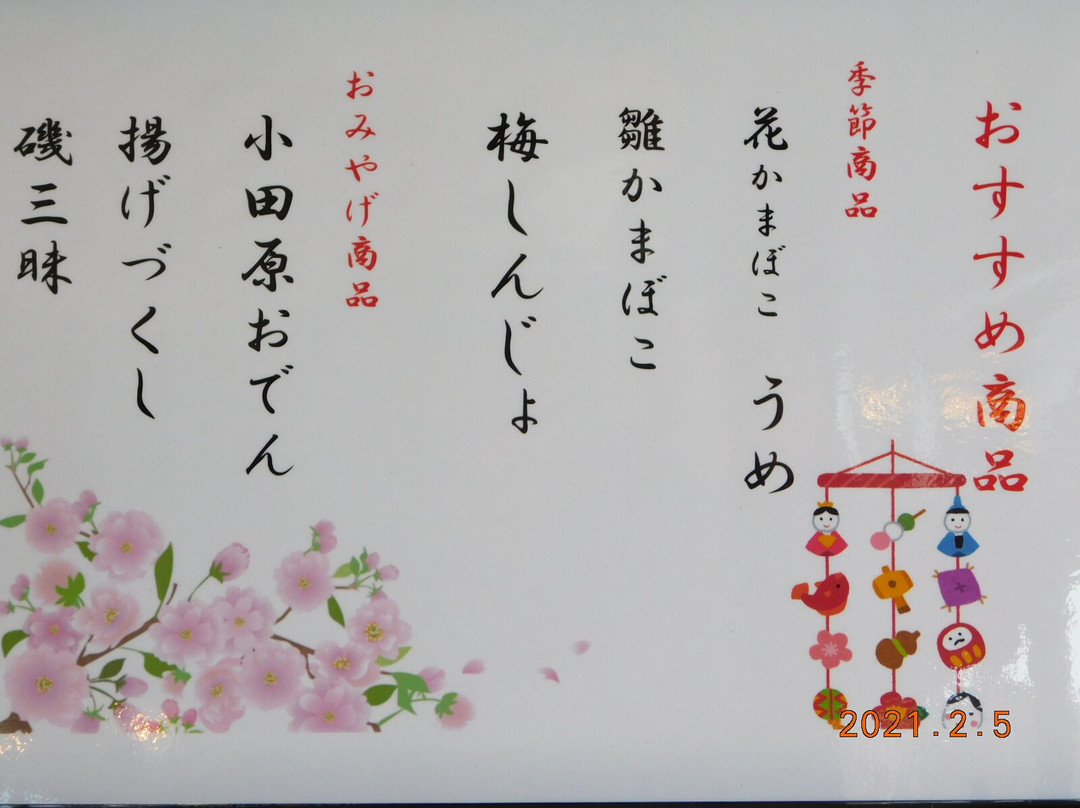 おすすめ商品
季節商品
花かまぼこ うめ
雛かまぼこ
梅しんじょ
おみやげ商品
小田原おでん
揚げづくし
磯三昧
2021.2.5